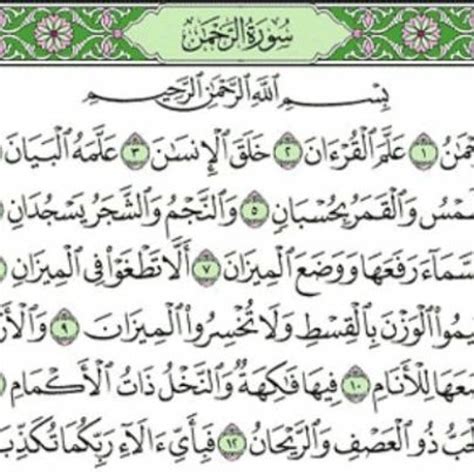 سُورَةُ الرَّحْمَٰن
بِسْمِ ٱللَّهِ ٱلرَّحْمَٰنِ ٱلرَّحِيمِ
حْمَٰنُ ١ عَلَّمَ ٱلْقُرْءَانَ ٢ خَلَقَ ٱلْإِنسَٰنَ ٣ عَلَّمَهُ ٱلْبَيَانَ
مْسُ وَٱلْقَمَرُ بِحُسْبَانٍ ٥ وَٱلنَّجْمُ وَٱلشَّجَرُ يَسْجُدَانِ
سَمَآءَ رَفَعَهَا وَوَضَعَ ٱلْمِيزَانَ ٧ أَلَّا تَطْغَوْا۟ فِى ٱلْمِيزَانِ
يمُوا۟ ٱلْوَزْنَ بِٱلْقِسْطِ وَلَا تُخْسِرُوا۟ ٱلْمِيزَانَ ٩ وَٱلْأَرْ
عَهَا لِلْأَنَامِ ١٠ فِيهَا فَٰكِهَةٌ وَٱلنَّخْلُ ذَاتُ ٱلْأَكْمَامِ
بُّ ذُو ٱلْعَصْفِ وَٱلرَّيْحَانُ ١٢ فَبِأَىِّ ءَالَآءِ رَبِّكُمَا تُكَذِّبَ